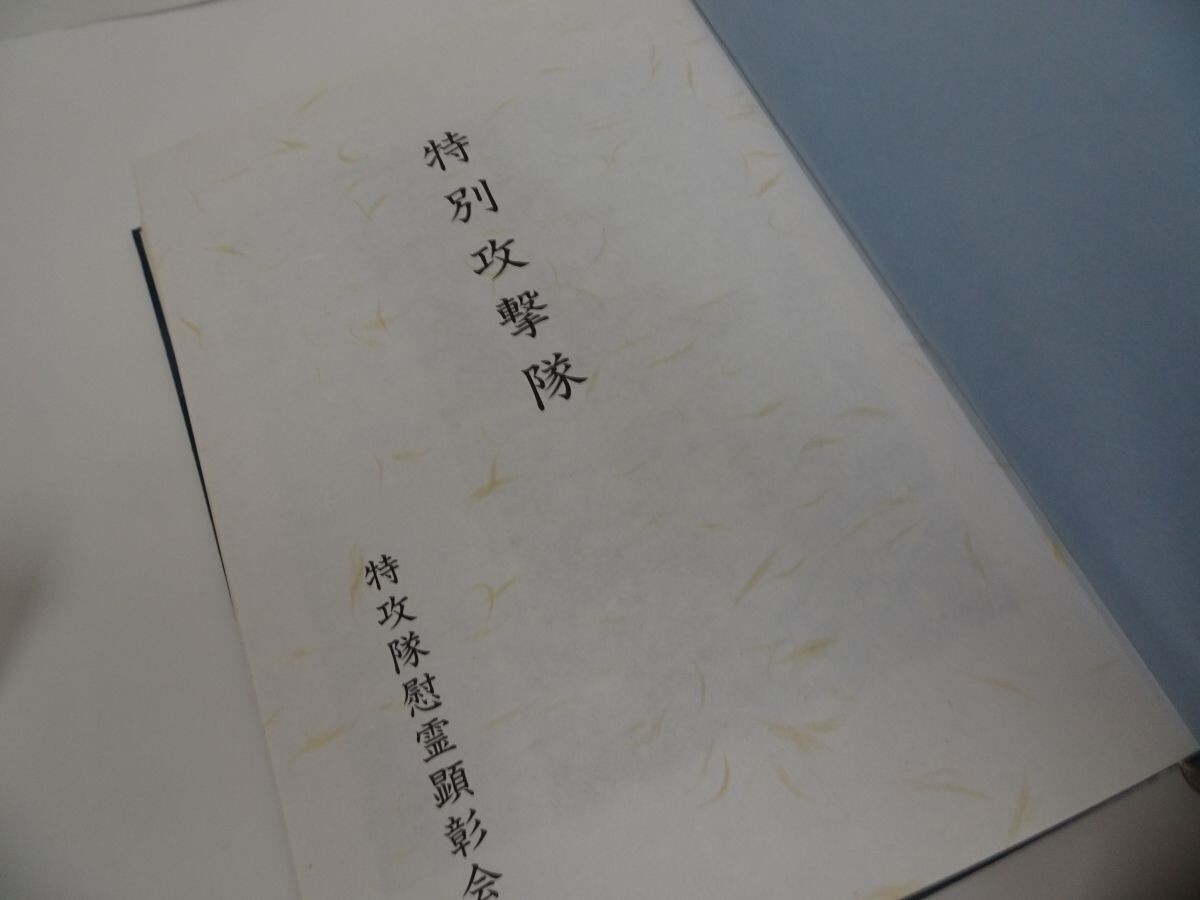 特別攻撃隊
特攻隊慰霊顕彰会